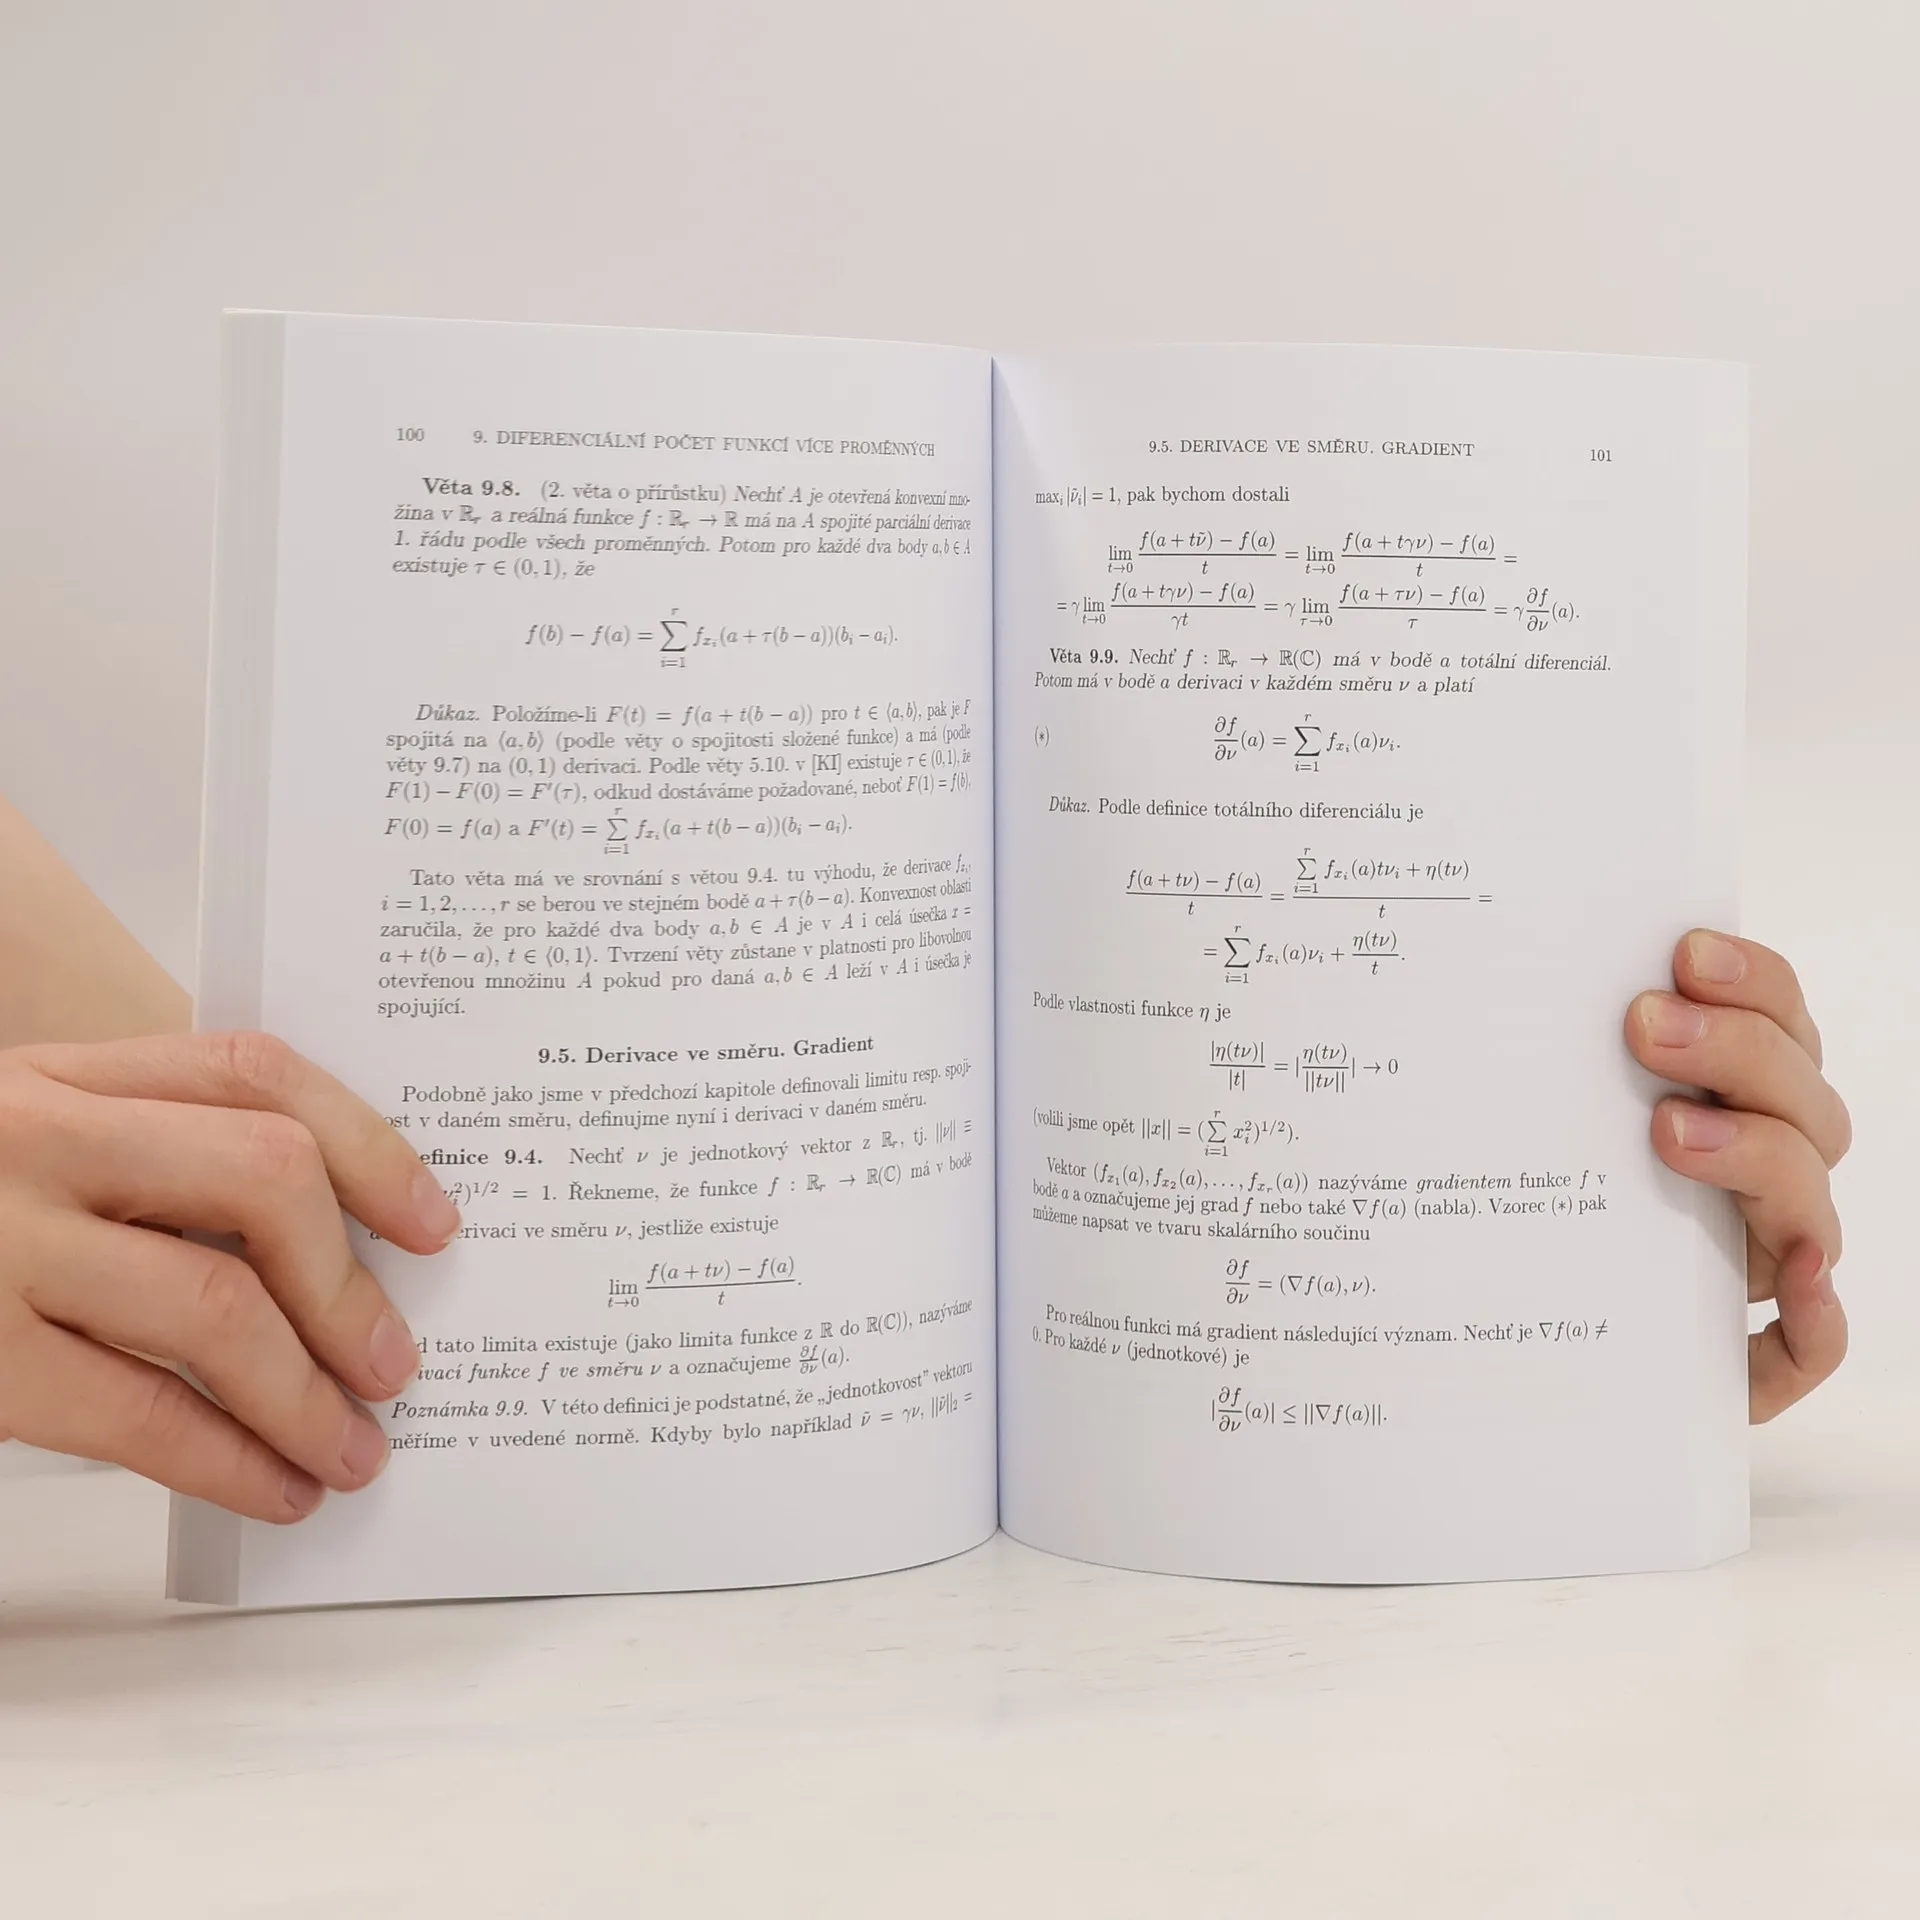 100 9. DIFERENCIÁLNÍ POČET FUNKCÍ VÍCE PROMĚNNÝCH
Věta 9.8. (2. věta o přírůstku) Nechť A je otevřená konvexní mno-
žina v ℝᵣ a reálná funkce f : ℝᵣ → ℝ má na A spojité parciální derivace
1. řádu podle všech proměnných. Potom pro každé dva body a, b ∈ A
existuje τ ∈ (0, 1), že
f(b) − f(a) = ∑_{i=1}^{r} f_{x_i}(a + τ(b − a))(b_i − a_i).
Důkaz. Položíme-li F(t) = f(a + t(b − a)) pro t ∈ ⟨a, b⟩, pak je F
spojitá na ⟨a, b⟩ (podle věty o spojitosti složené funkce) a má (podle
věty 9.7) na (0, 1) derivaci. Podle věty 5.10. v [KI] existuje τ ∈ (0, 1), že
F(1) − F(0) = F′(τ), odkud dostáváme požadované, neboť F(1) = f(b),
F(0) = f(a) a F′(t) = ∑_{i=1}^{r} f_{x_i}(a + t(b − a))(b_i − a_i).
Tato věta má ve srovnání s větou 9.4. tu výhodu, že derivace f_{x_i},
i = 1, 2, . . . , r se berou ve stejném bodě a + τ(b − a). Konvexnost oblasti
zaručila, že pro každé dva body a, b ∈ A je v A i celá úsečka x =
a + t(b − a), t ∈ ⟨0, 1⟩. Tvrzení věty zůstane v platnosti pro libovolnou
otevřenou množinu A pokud pro daná a, b ∈ A leží v A i úsečka je
spojující.
9.5. Derivace ve směru. Gradient
Podobně jako jsme v předchozí kapitole definovali limitu resp. spoji-
ost v daném směru, definujme nyní i derivaci v daném směru.
efinice 9.4. Nechť ν je jednotkový vektor z ℝᵣ, tj. ||ν|| ≡
ν_i^2)^{1/2} = 1. Řekneme, že funkce f : ℝᵣ → ℝ(ℂ) má v bodě
erivaci ve směru ν, jestliže existuje
lim_{t→0} (f(a + tν) − f(a))/t.
d tato limita existuje (jako limita funkce z ℝ do ℝ(ℂ)), nazýváme
ivací funkce f ve směru ν a označujeme ∂f/∂ν(a).
Poznámka 9.9. V této definici je podstatné, že „jednotkovost” vektoru
měříme v uvedené normě. Kdyby bylo například ν̃ = γν, ||ν̃||₂ =
9.5. DERIVACE VE SMĚRU. GRADIENT 101
max_i |ν̃_i| = 1, pak bychom dostali
lim_{t→0} (f(a + tν̃) − f(a))/t = lim_{t→0} (f(a + tγν) − f(a))/t =
= γ lim_{t→0} (f(a + tγν) − f(a))/γt = γ lim_{τ→0} (f(a + τν) − f(a))/τ = γ ∂f/∂ν(a).
Věta 9.9. Nechť f : ℝᵣ → ℝ(ℂ) má v bodě a totální diferenciál.
Potom má v bodě a derivaci v každém směru ν a platí
(*) ∂f/∂ν(a) = ∑_{i=1}^{r} f_{x_i}(a)ν_i.
Důkaz. Podle definice totálního diferenciálu je
(f(a + tν) − f(a))/t = (∑_{i=1}^{r} f_{x_i}(a)tν_i + η(tν))/t =
= ∑_{i=1}^{r} f_{x_i}(a)ν_i + η(tν)/t.
Podle vlastnosti funkce η je
|η(tν)|/|t| = |η(tν)/||tν||| → 0
(volili jsme opět ||x|| = (∑_{i=1}^{r} x_i^2)^{1/2}).
Vektor (f_{x_1}(a), f_{x_2}(a), . . . , f_{x_r}(a)) nazýváme gradientem funkce f v
bodě a a označujeme jej grad f nebo také ∇f(a) (nabla). Vzorec (*) pak
můžeme napsat ve tvaru skalárního součinu
∂f/∂ν = (∇f(a), ν).
Pro reálnou funkci má gradient následující význam. Nechť je ∇f(a) ≠
0. Pro každé ν (jednotkové) je
|∂f/∂ν(a)| ≤ ||∇f(a)||.